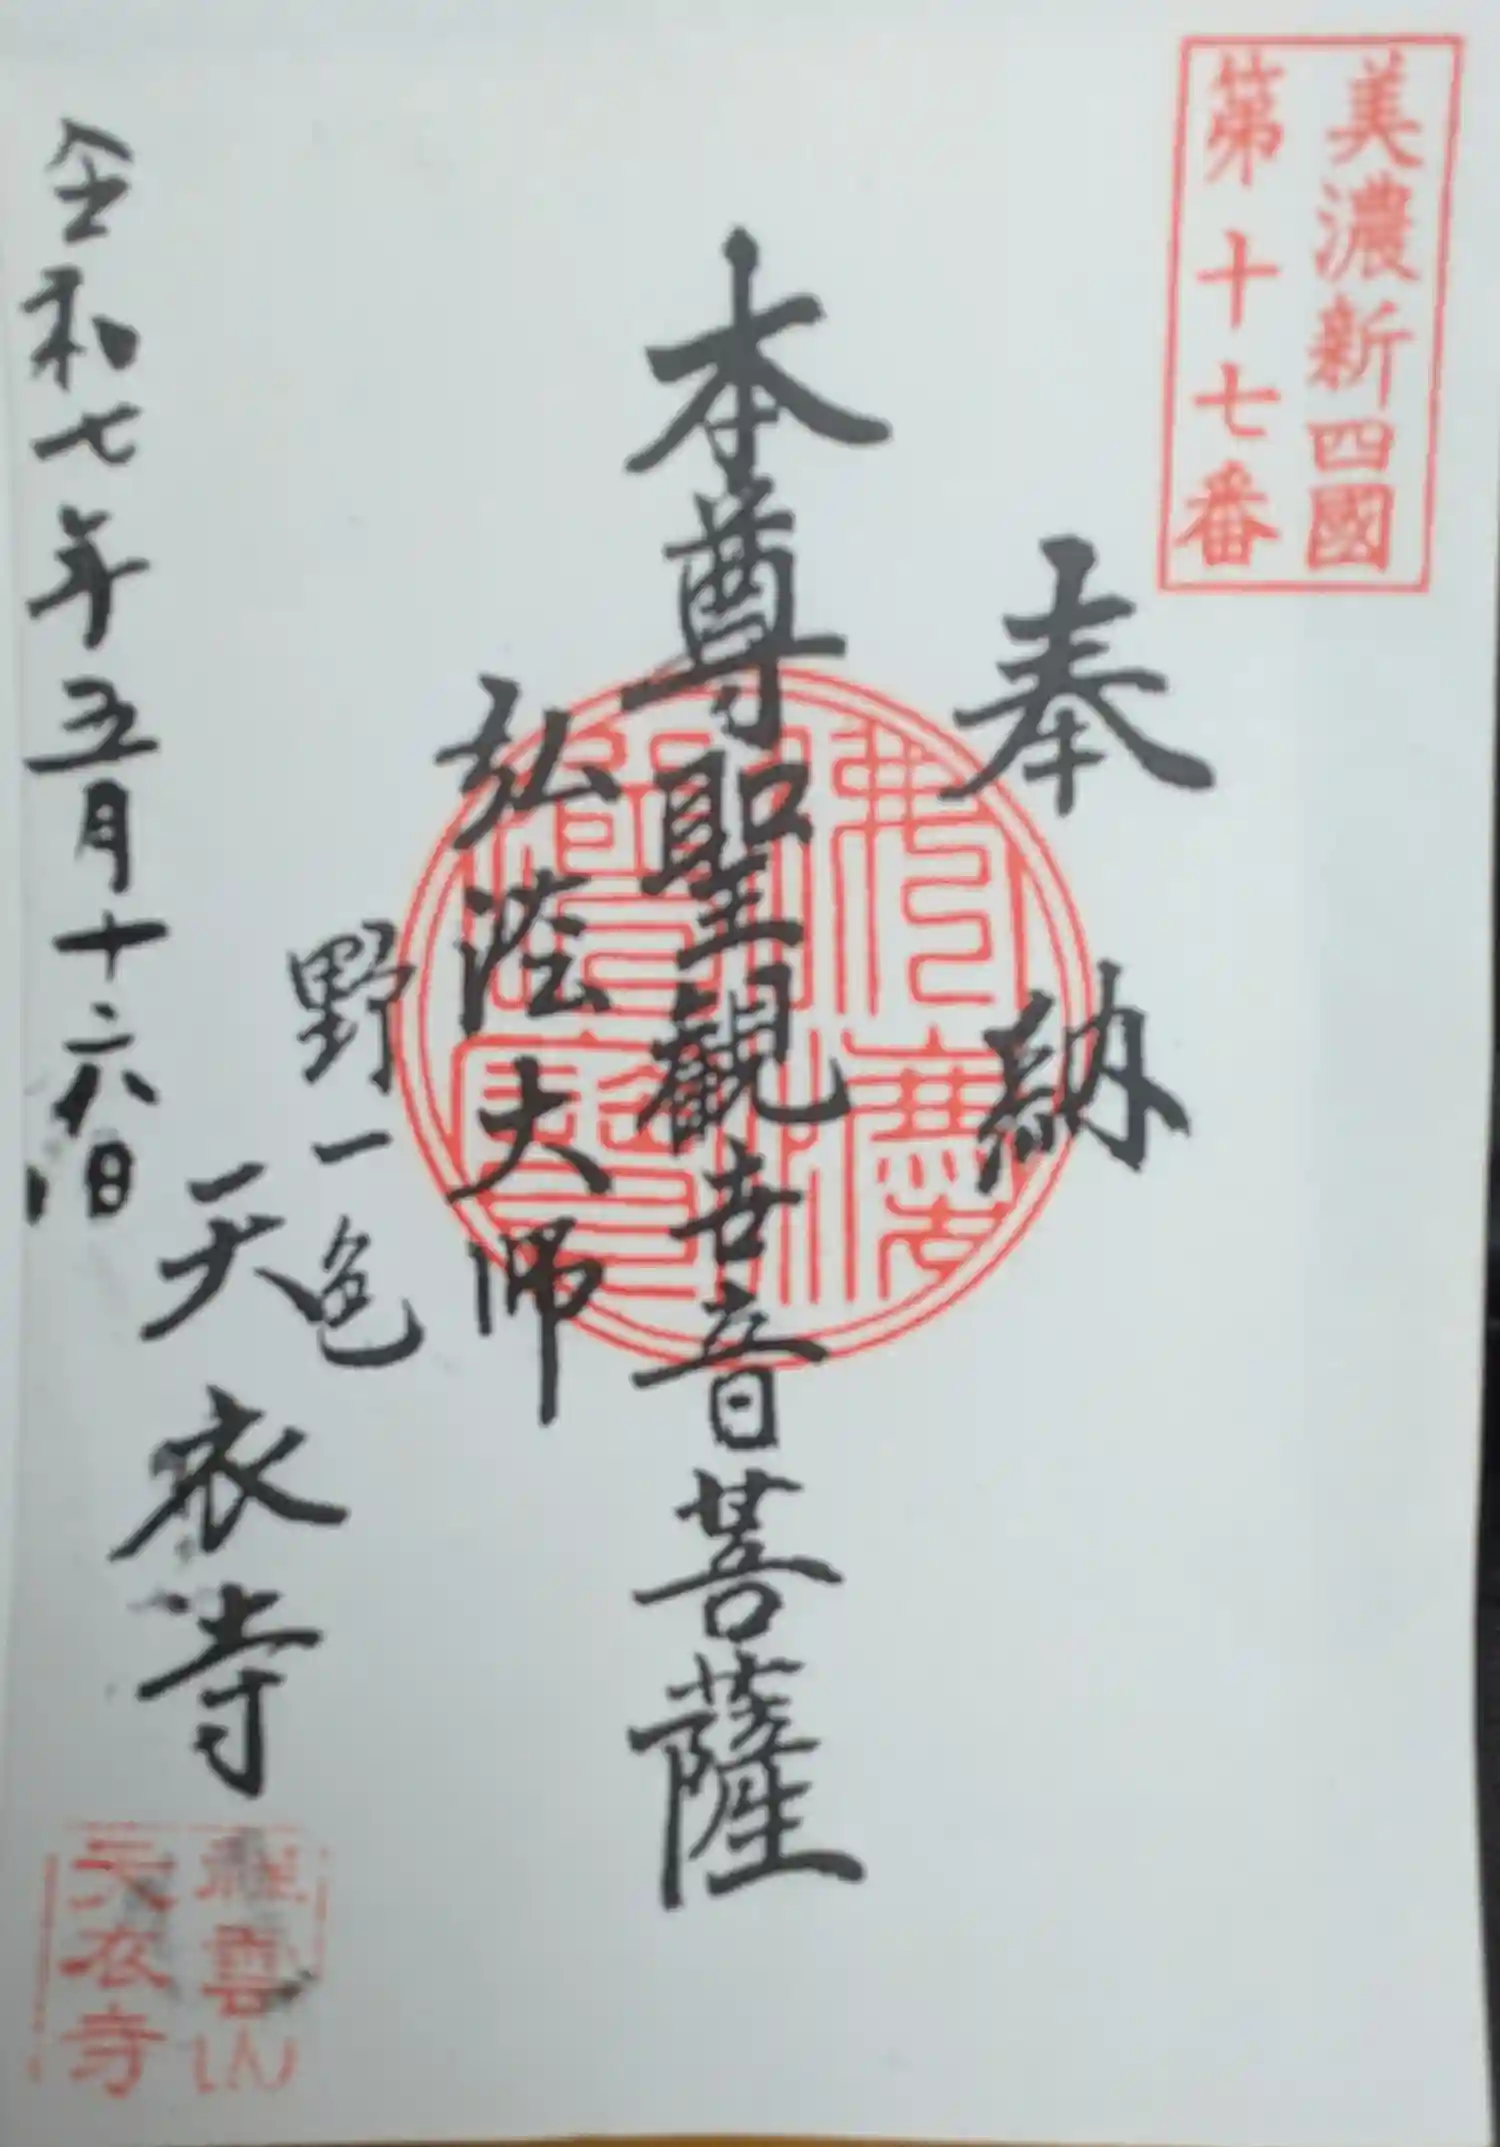 美濃新四國
第十七番
奉納
本尊聖観世音菩薩
弘法大師
野一色
天衣寺
令和七年五月十六日
雲山
天衣寺